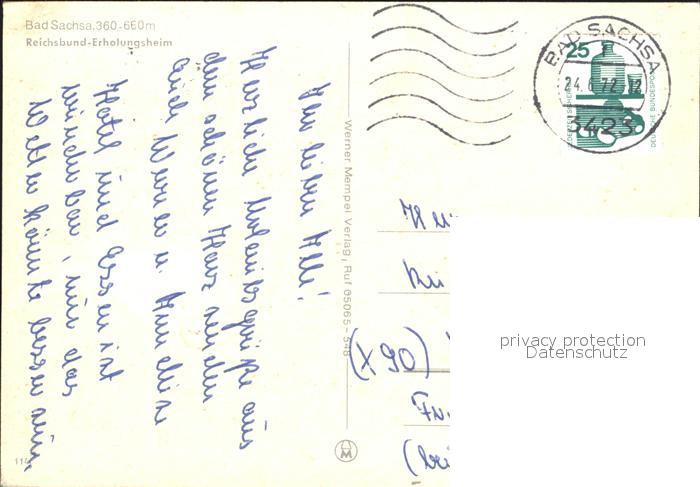 Bad Sachsa, 360-660m
Reichsbund-Erholungsheim
Ihr lieben All!
Herzliche Urlaubsgrüße aus
dem schönen Harz senden
Euch Werner u.
Hotel und Essen ist
wunderbar, nur das
Wetter könnte besser sein.
Werner Mempel Verlag, Ruf 05065-548
25
JEDERZEIT SICHERHEIT
DEUTSCHE BUNDESPOST
BAD SACHSA
24.6.72.12
3423
(X 90)
privacy protection
Datenschutz
M